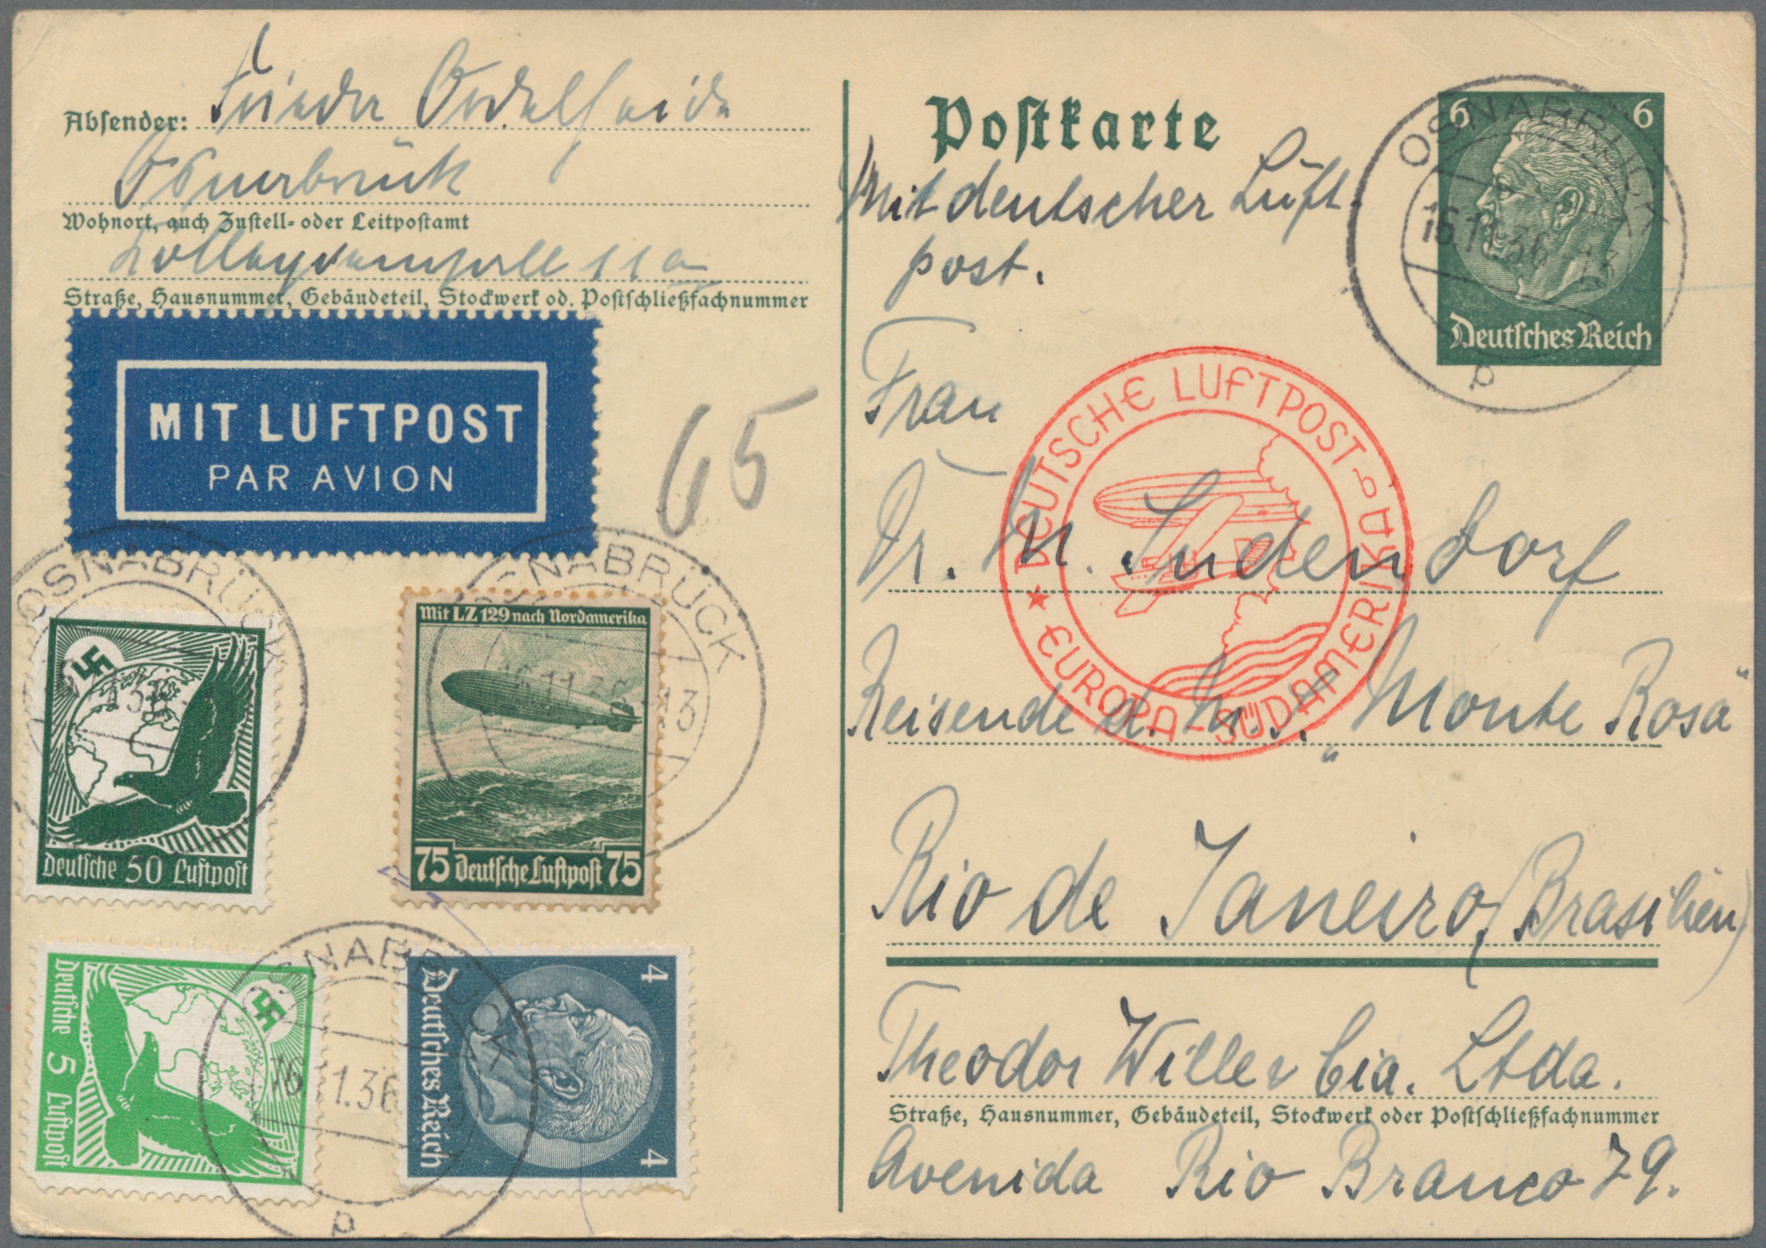 Absender: Frieda
Osnabrück
Wohnort, auch Zustell- oder Leitpostamt
11a
Straße, Hausnummer, Gebäudeteil, Stockwerk od. Postschließfachnummer
MIT LUFTPOST
PAR AVION
65
OSNABRÜCK
Deutsche 50 Luftpost
OSNABRÜCK
16.11.36.-13
Mit LZ 129 nach Nordamerika
75 Deutsche Luftpost 75
OSNABRÜCK
16.11.36
p
Deutsche 5 Luftpost
4 4
Deutsches Reich
Postkarte
Mit deutscher Luft
post.
OSNABRÜCK
16.11.36
p
6 6
Deutsches Reich
DEUTSCHE LUFTPOST b
EUROPA-SÜDAMERIKA
Frau
Dr. M. Sudendorf
Reisende d. M.S. „Monte Rosa"
Rio de Janeiro (Brasilien)
Theodor Wille & Cia. Ltda.
Straße, Hausnummer, Gebäudeteil, Stockwerk oder Postschließfachnummer
Avenida Rio Branco 79.